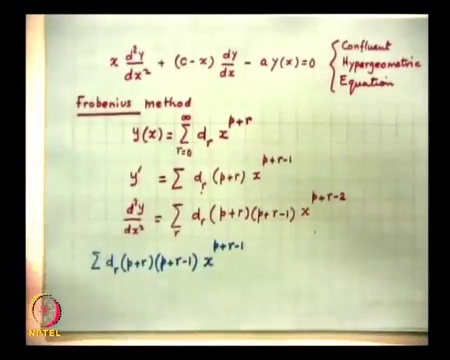 x d²y/dx² + (c-x) dy/dx - a y(x) = 0 { Confluent Hypergeometric Equation
Frobenius method
y(x) = Σ_{r=0}^{∞} d_r x^{p+r}
y' = Σ d_r (p+r) x^{p+r-1}
d²y/dx² = Σ_r d_r (p+r)(p+r-1) x^{p+r-2}
Σ d_r (p+r)(p+r-1) x^{p+r-1}
NPTEL